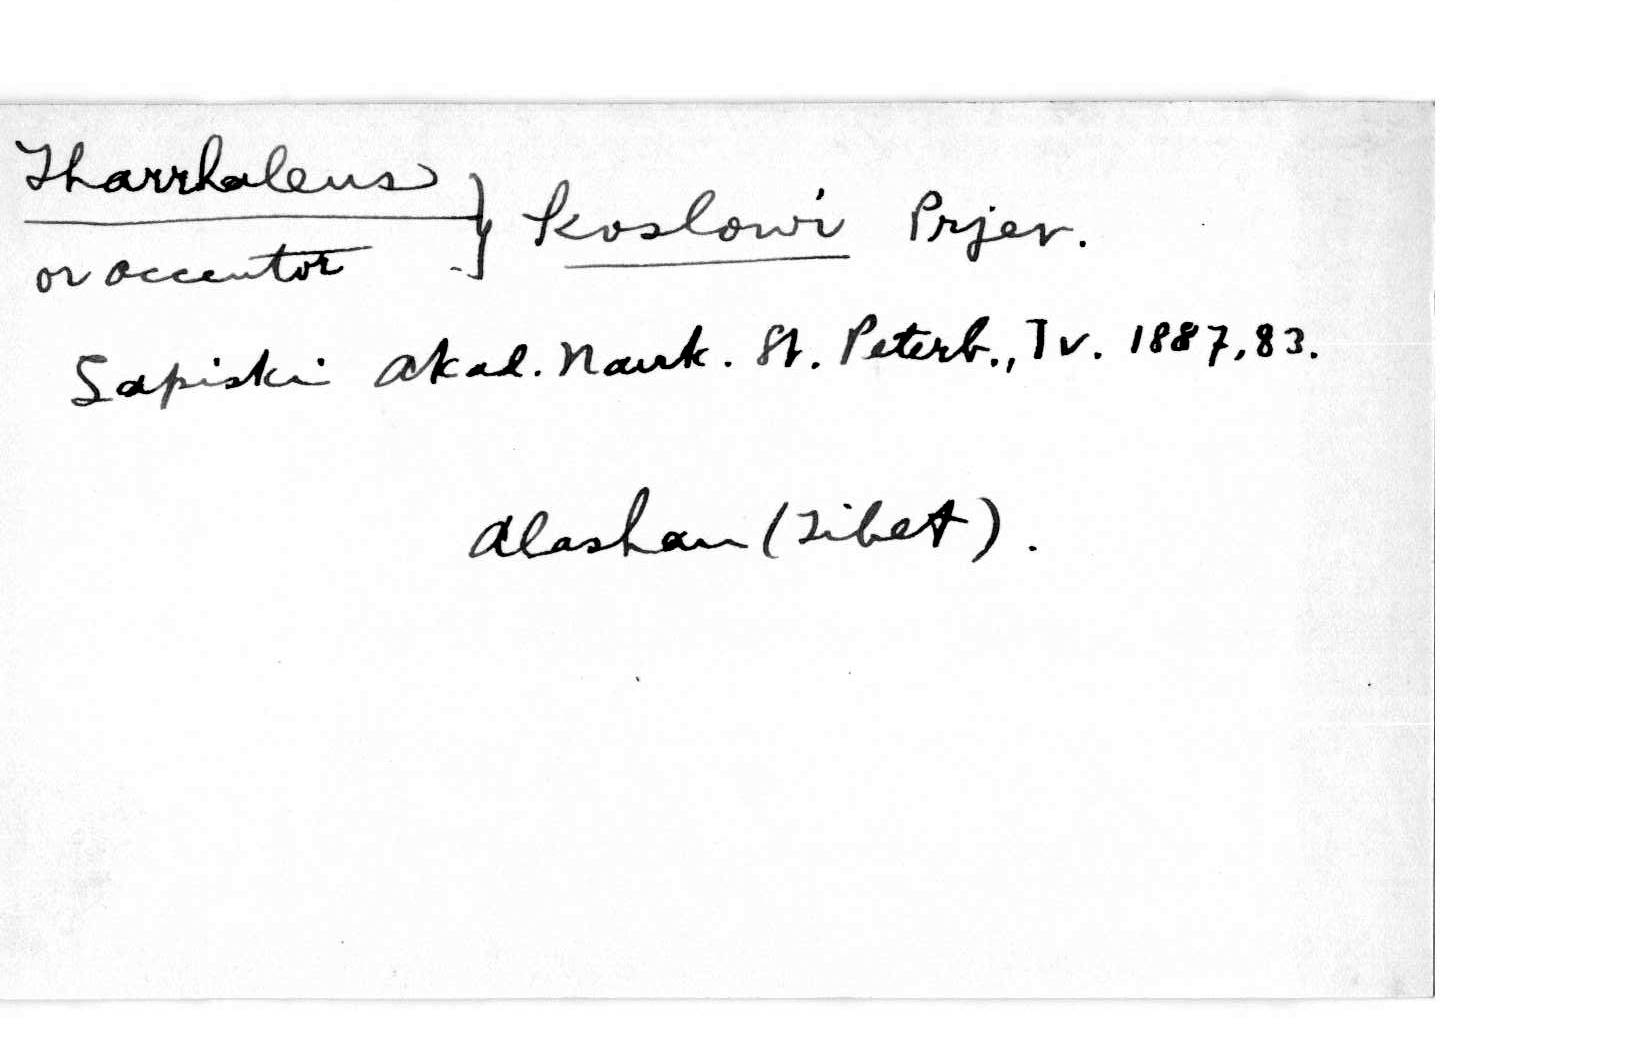 Tharrhaleus } koslowi Prjev.
or accentor
Sapiski Akad. Nauk. St. Peterb., Tv. 1887, 83.
Alashan (Tibet).